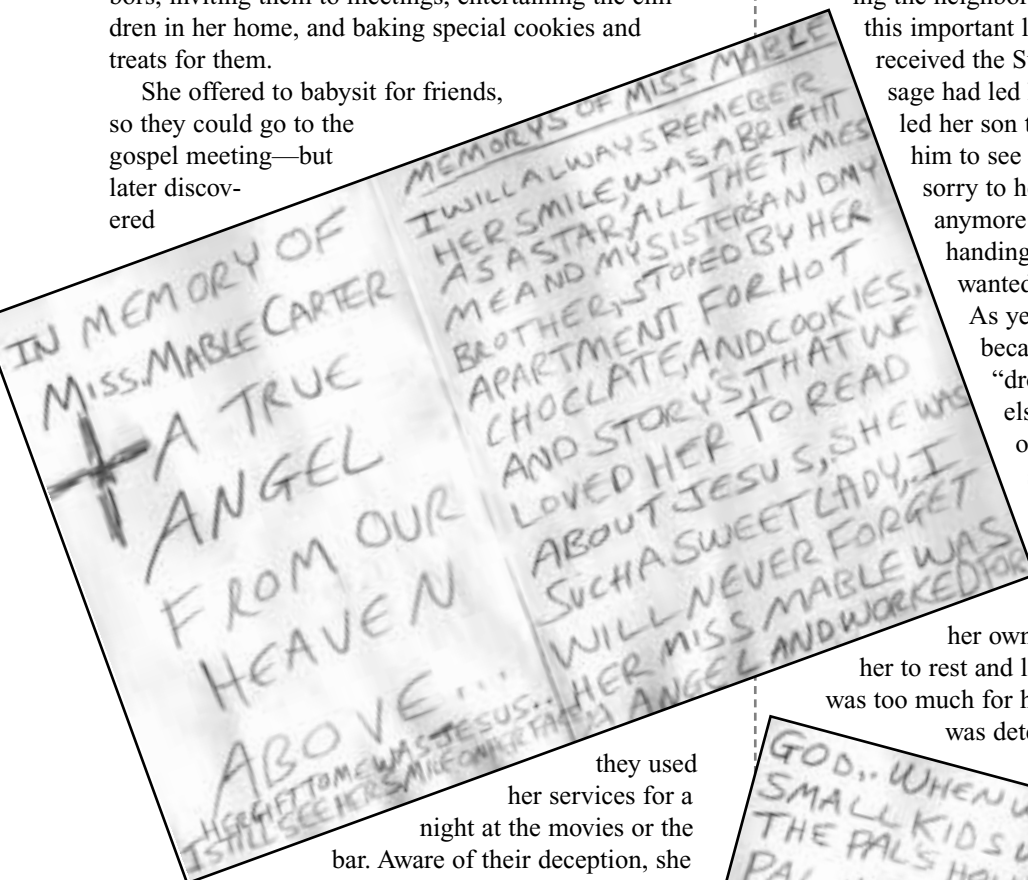 bors, inviting them to meetings, entertaining the chil-
dren in her home, and baking special cookies and
treats for them.
She offered to babysit for friends,
so they could go to the
gospel meeting—but
later discov-
ered
they used
her services for a
night at the movies or the
bar. Aware of their deception, she
IN MEMORY OF
MISS. MABLE CARTER
A TRUE
ANGEL
FROM OUR
HEAVEN
ABOVE...
HER GIFT TO ME WAS JESUS..
I STILL SEE HER SMILE ON HER FACE,
MEMORYS OF MISS MABLE
I WILL ALWAYS REMEBER
HER SMILE, WAS A BRIGHT
AS A STAR, ALL THE TIMES
ME AND MY SISTER'S AN D MY
BROTHER, STOPED BY HER
APARTMENT FOR HOT
CHOCLATE, AND COOKIES,
AND STORY'S, THAT WE
LOVED HER TO READ
ABOUT JESUS, SHE WAS
SUCH A SWEET LADY, I
WILL NEVER FORGET
HER MISS MABLE WAS
ANGEL AND WORKED FOR
ing the neighbor
this important
received the S
sage had led
led her son
him to see
sorry to h
anymore
handing
wanted
As ye
beca
“dr
els
o
her own
her to rest and l
was too much for h
was det
GOD,. WHEN
SMALL KIDS
THE PAL'S HO
PAL